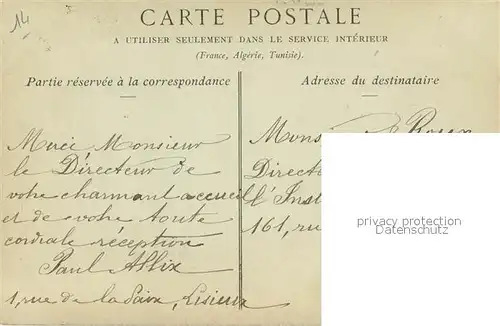 14
CARTE POSTALE
A UTILISER SEULEMENT DANS LE SERVICE INTÉRIEUR
(France, Algérie, Tunisie).
Partie réservée à la correspondance
Adresse du destinataire
Merci Monsieur
le Directeur de
votre charmant accueil
et de votre toute
cordiale réception
Paul Allix
1, rue de la Paix, Lisieux
Mons
Direct
l'Inst
161, ru
privacy protection
Datenschutz